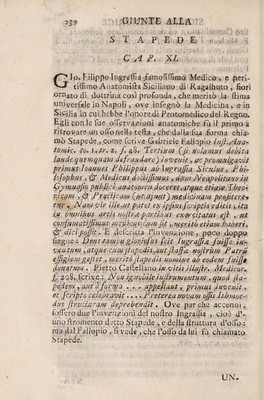 232 GIUNTE ALLA
STAPEDE
CAP. XI.
GIo. Filippo Ingrassia famosissimo Medico, e peri-
tissimo Anatomista Siciliano di Ragalbuto, fiorì
ornato di dottrina così profonda, che meritò la stima
universale in Napoli, ove insegnò la Medicina, e in
Sicilia in cui hebbe l'onore di Protomedico del Regno.
Egli con le sue osservazioni anatomiche fù il primo à
ritrovare un osso nella testa, che dalla sua forma chia-
mò Stapede, come scrive Gabriele Fallopio
Tertium
lande quemquam defraudare) invenit, ac promulgavit
primus Ioannes Philippus ab Ingrassia Siculus, Phi-
losophus, & Medicus doctissimus, dum Neapoli in
Gymnasio publico anatomen doceret, atque etiam Theori-
cam, & Practicam medicinam
Nam vir ille
in omnibus artis nostræ partibus exercitatus est, ut
consumatissimus
& dici possit. E descritta l'invenzione, poco doppo
siegue: Deus tamen gloriosus scit Ingrassia fuisse in-
ventum, atque cum stapedis, aut staffæ nostrum Patrũ
effigiem gestet, meritò stapedis nomine ab eodem fuisse
donatum. Pietro Castellano in vitis illustr. Medicor.
f. 208. scrive: Non ignobile instrumentum, quod sta-
pedem, aut à forma . . . appellant, primus invenit
et scripto celebravit . . . . Præterea novam ossis
structuram deprehendit. Ove par che accenni,
fossero due l'invenzioni del nostro Ingrassia, cioè d'-
uno stromento detto Stapede, e della struttura d'osso:
ma dal Fallopio, si vede, che l'osso da lui fù chiamato
Stapede.
UN-